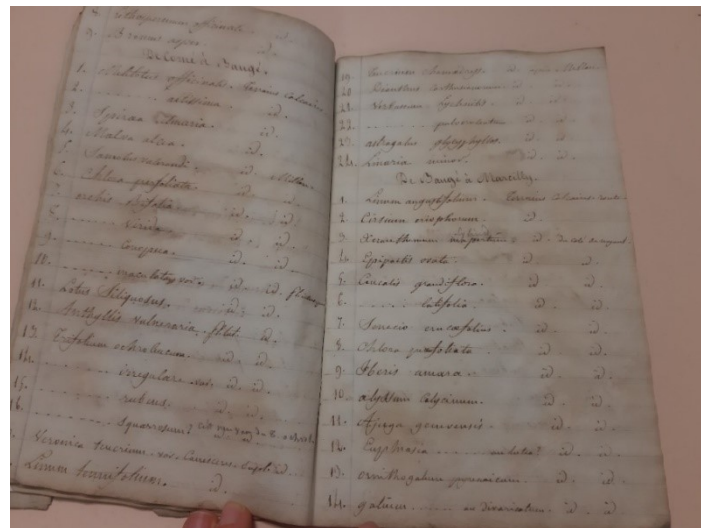 9. Bromus asper. id.
De Corné à Baugé.
1. Melilotus officinalis. Terrains calcaires
2. ------- altissima. id.
3. Spiraea Filipendula. id.
4. Malva alcea. id.
5. Samolus valerandi. id.
6. Chlora perfoliata. id. id.
7. orchis bifolia. id. id.
8. ------- viridis. id. id.
9. ------- Conopsea. id. id.
10. ------- maculata, id. id.
11. Lotus Siliquosus. id.
12. Anthyllis vulneraria. id.
13. Trifolium ochroleucum. id. id.
14. ------- irregulare id. id.
15. ------- rubens. id. id.
16. ------- squarrosum?
Veronica teucrium. var.
Linum tenuifolium. id.
19. Teucrium chamaedrys id.
20. id. id.
21. Verbascum Lychnitis id. id.
22. ------- pulverulentum id. id.
23. astragalus glycyphyllos. id.
24. Linaria minor. id. id.
De Baugé à Marcilly.
1. Linum angustifolium. Terrains calcaires
2. Cirsium eriophorum id.
3. Xeranthemum id.
4. Epipactis ovata. id. id.
5. Caucalis grandiflora. id. id.
6. ------- latifolia. id. id.
7. Senecio erucaefolius. id. id.
8. Chlora perfoliata. id. id.
9. Iberis amara. id. id.
10. alyssum Calycinum. id. id.
11. Ajuga genevensis. id. id.
12. Euphrasia ------- id. id.
13. ornithogalum pyrenaicum. id. id.
14. galium ------- an divaricatum. id. id.